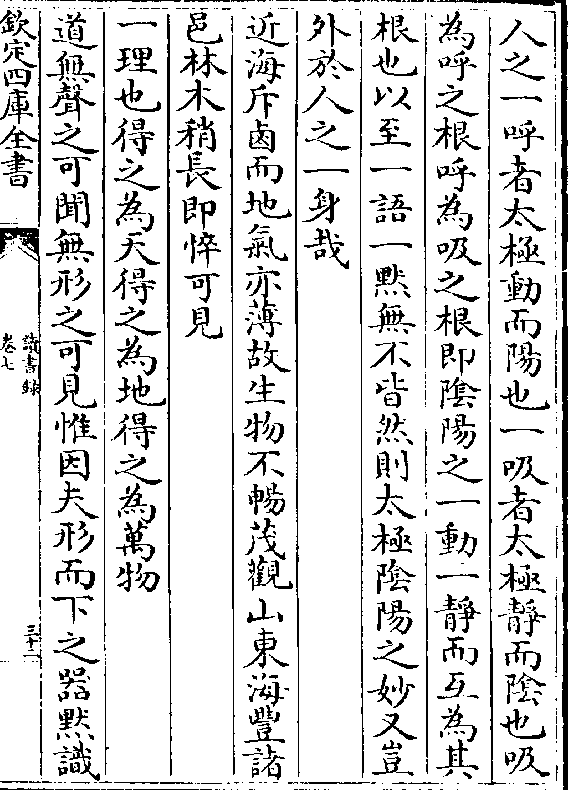 人之一呼者太極動而陽也一吸者太極靜而陰也吸
為呼之根呼為吸之根即陰陽之一動一靜而互為其
根也以至一語一黙無不皆然則太極陰陽之妙又豈
外於人之一身哉
近海斥鹵而地氣亦薄故生物不暢茂觀山東海豐諸
邑林木稍長即悴可見
一理也得之為天得之為地得之為萬物
道無聲之可聞無形之可見惟因夫形而下之器黙識
欽定四庫全書
讀書録
卷七
三十二